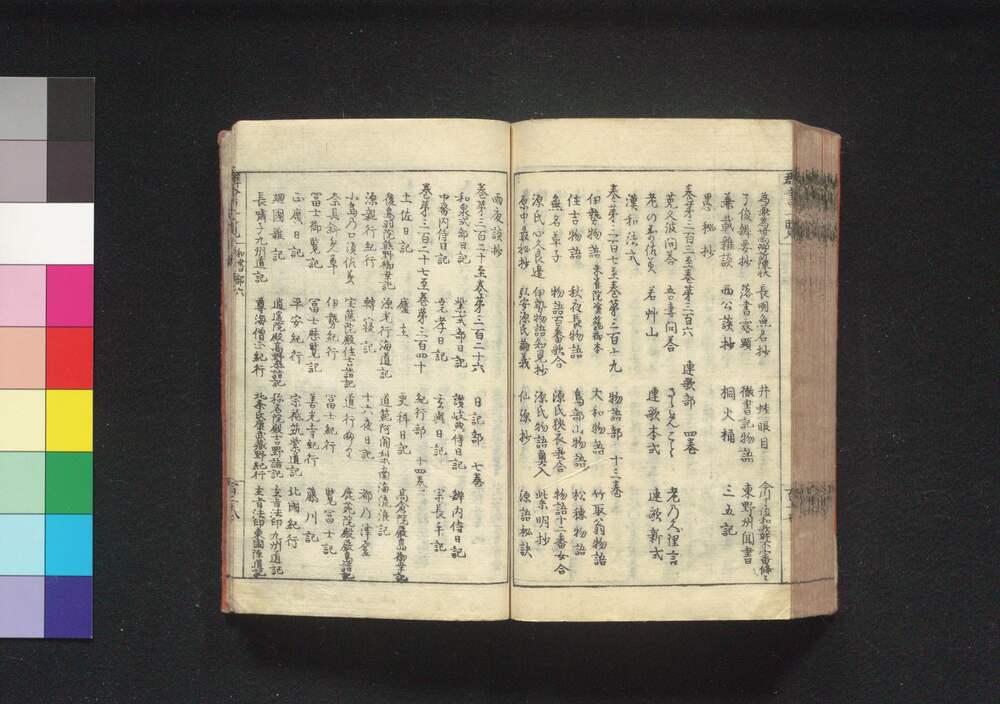 長明無名抄 井蛙眼目 今川了俊和歌所不審條々
了俊辨要抄 落書露顯 徹書記物語 東野州聞書
兼載雜談 西公談抄 桐火桶 三五記
愚秘抄
巻第三百三至巻第三百六 連歌部 四巻
莬久波問答 吾妻問答 老乃久里言
若艸山 連歌本式 連歌新式
漢和法式
巻第三百七至巻第三百十九 物語部 十三巻
伊勢物語 朱雀院塗籠本 大和物語 竹取翁物語
住吉物語 秋夜長物語 鳥部山物語 松穂物語
無名草子 物語百番歌合 源氏狭衣歌合 物語十二番女合
源氏心久良邊 伊勢物語知見抄 源氏物語奥入 紫明抄
原中最秘抄 弘安源氏論義 仙源抄 源語秘訣
雨夜談抄
巻第三百二十至巻第三百二十六 日記部 七巻
和泉式部日記 紫式部日記 讃岐典侍日記 辨内侍日記
中務内侍日記 玄與日記 宗長手記
巻第三百二十七至巻第三百四十 紀行部 十四巻
土佐日記 廬主 更科日記 高倉院嚴島御幸記
後鳥羽院熊野御幸記 源光行海道記 道範阿闍梨南海流浪記
源親行紀行 轉寝記 十六夜日記 都乃津登
小島乃口須佐美 宝篋院殿住吉詣記 道行 鹿苑院殿嚴島詣記
伊勢紀行 冨士紀行 覽冨士記
冨士御覽記 冨士歴覽記 善光寺紀行 藤川記
正廣日記 平安紀行 宗祇筑紫道記 北國紀行
廻國雜記 逍遥院殿高野詣記 称名院殿吉野詣記 玄旨法印九州道記
尊海僧正紀行 北条氏康武蔵野紀行 玄旨法印東國陣道記